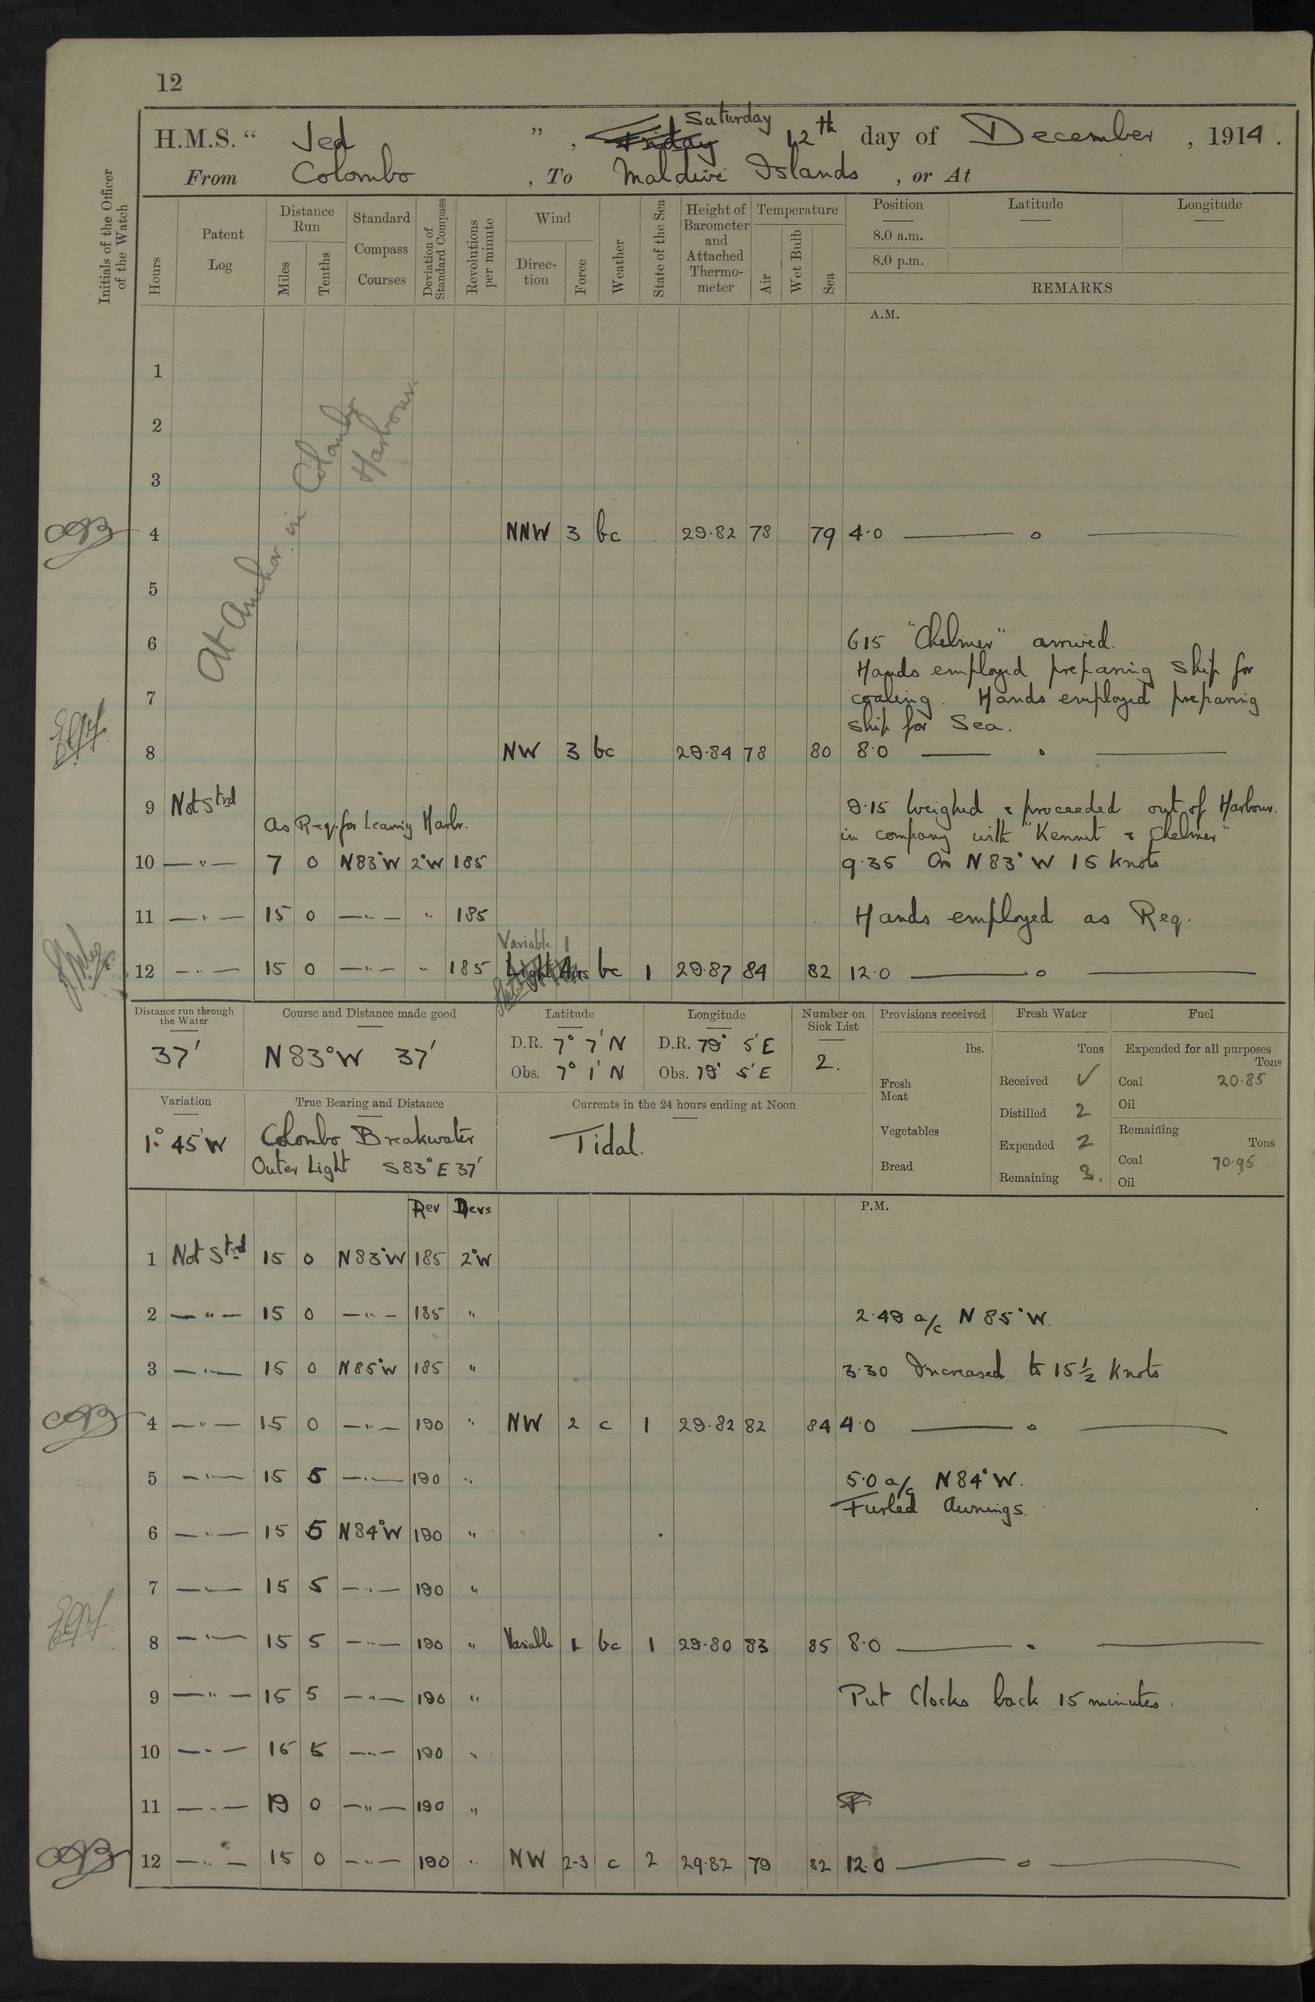 12
H.M.S. “ Jed ”, Friday Saturday 12th day of December, 1914.
From Colombo, To Maldive Islands, or At
Initials of the Officer of the Watch
Hours
Patent Log
Distance Run
Miles
Tenths
Standard Compass Courses
Deviation of Standard Compass
Revolutions per minute
Wind
Direction
Force
Weather
State of the Sea
Height of Barometer and Attached Thermometer
Temperature
Air
Wet Bulb
Sea
Position Latitude Longitude
8.0 a.m.
8.0 p.m.
REMARKS
A.M.
At Anchor in Colombo Harbour.
1
2
3
4 NNW 3 bc 29.82 78 79 4.0 —— o ——
5
6 615 "Chelmer" arrived.
Hands employed preparing ship for
7 coaling. Hands employed preparing
ship for Sea.
8 NW 3 bc 29.84 78 80 8.0 —— . ——
9 Not Strd As Req. for Leaving Harbr. 9.15 Weighed & proceeded out of Harbour.
in company with "Kennet & Chelmer"
10 — " — 7 0 N83°W 2°W 185 9.35 Co N 83° W 15 knots
11 — " — 15 0 — " — " 185 Hands employed as Req.
Variable 1
12 — " — 15 0 — " — " 185 Light Airs bc 1 29.87 84 82 12.0 —— o ——
Distance run through the Water
37'
Course and Distance made good
N 83° W 37'
Latitude
D.R. 7° 7' N
Obs. 7° 1' N
Longitude
D.R. 79° 5' E
Obs. 79° 5' E
Number on Sick List
2.
Provisions received
lbs.
Fresh Meat
Vegetables
Bread
Fresh Water
Tons
Received ✓
Distilled 2
Expended 2
Remaining
Fuel
Expended for all purposes
Tons
Coal 20.85
Oil
Remaining
Tons
Coal 70.95
Oil
Variation
1° 45' W
True Bearing and Distance
Colombo Breakwater
Outer Light S 83° E 37'
Currents in the 24 hours ending at Noon
Tidal.
Rev Devs
P.M.
1 Not Strd 15 0 N83°W 185 2°W
2 — " — 15 0 — " — 185 " 2.48 a/c N 85° W.
3 — " — 15 0 N85°W 185 " 3.30 Increased to 15½ knots
4 — " — 15 0 — " — 190 " NW 2 c 1 29.82 82 84 4.0 —— o ——
5 — " — 15 5 — " — 190 " 5.0 a/c N 84° W.
Furled Awnings.
6 — " — 15 5 N84°W 190 "
7 — " — 15 5 — " — 190 "
8 — " — 15 5 — " — 190 " Variable 1 bc 1 29.80 83 85 8.0 —— . ——
9 — " — 15 5 — " — 190 " Put Clocks back 15 minutes.
10 — " — 15 5 — " — 190 "
11 — " — 19 0 — " — 190 "
12 — " — 15 0 — " — 190 " NW 2-3 c 2 29.82 79 82 12.0 —— o ——